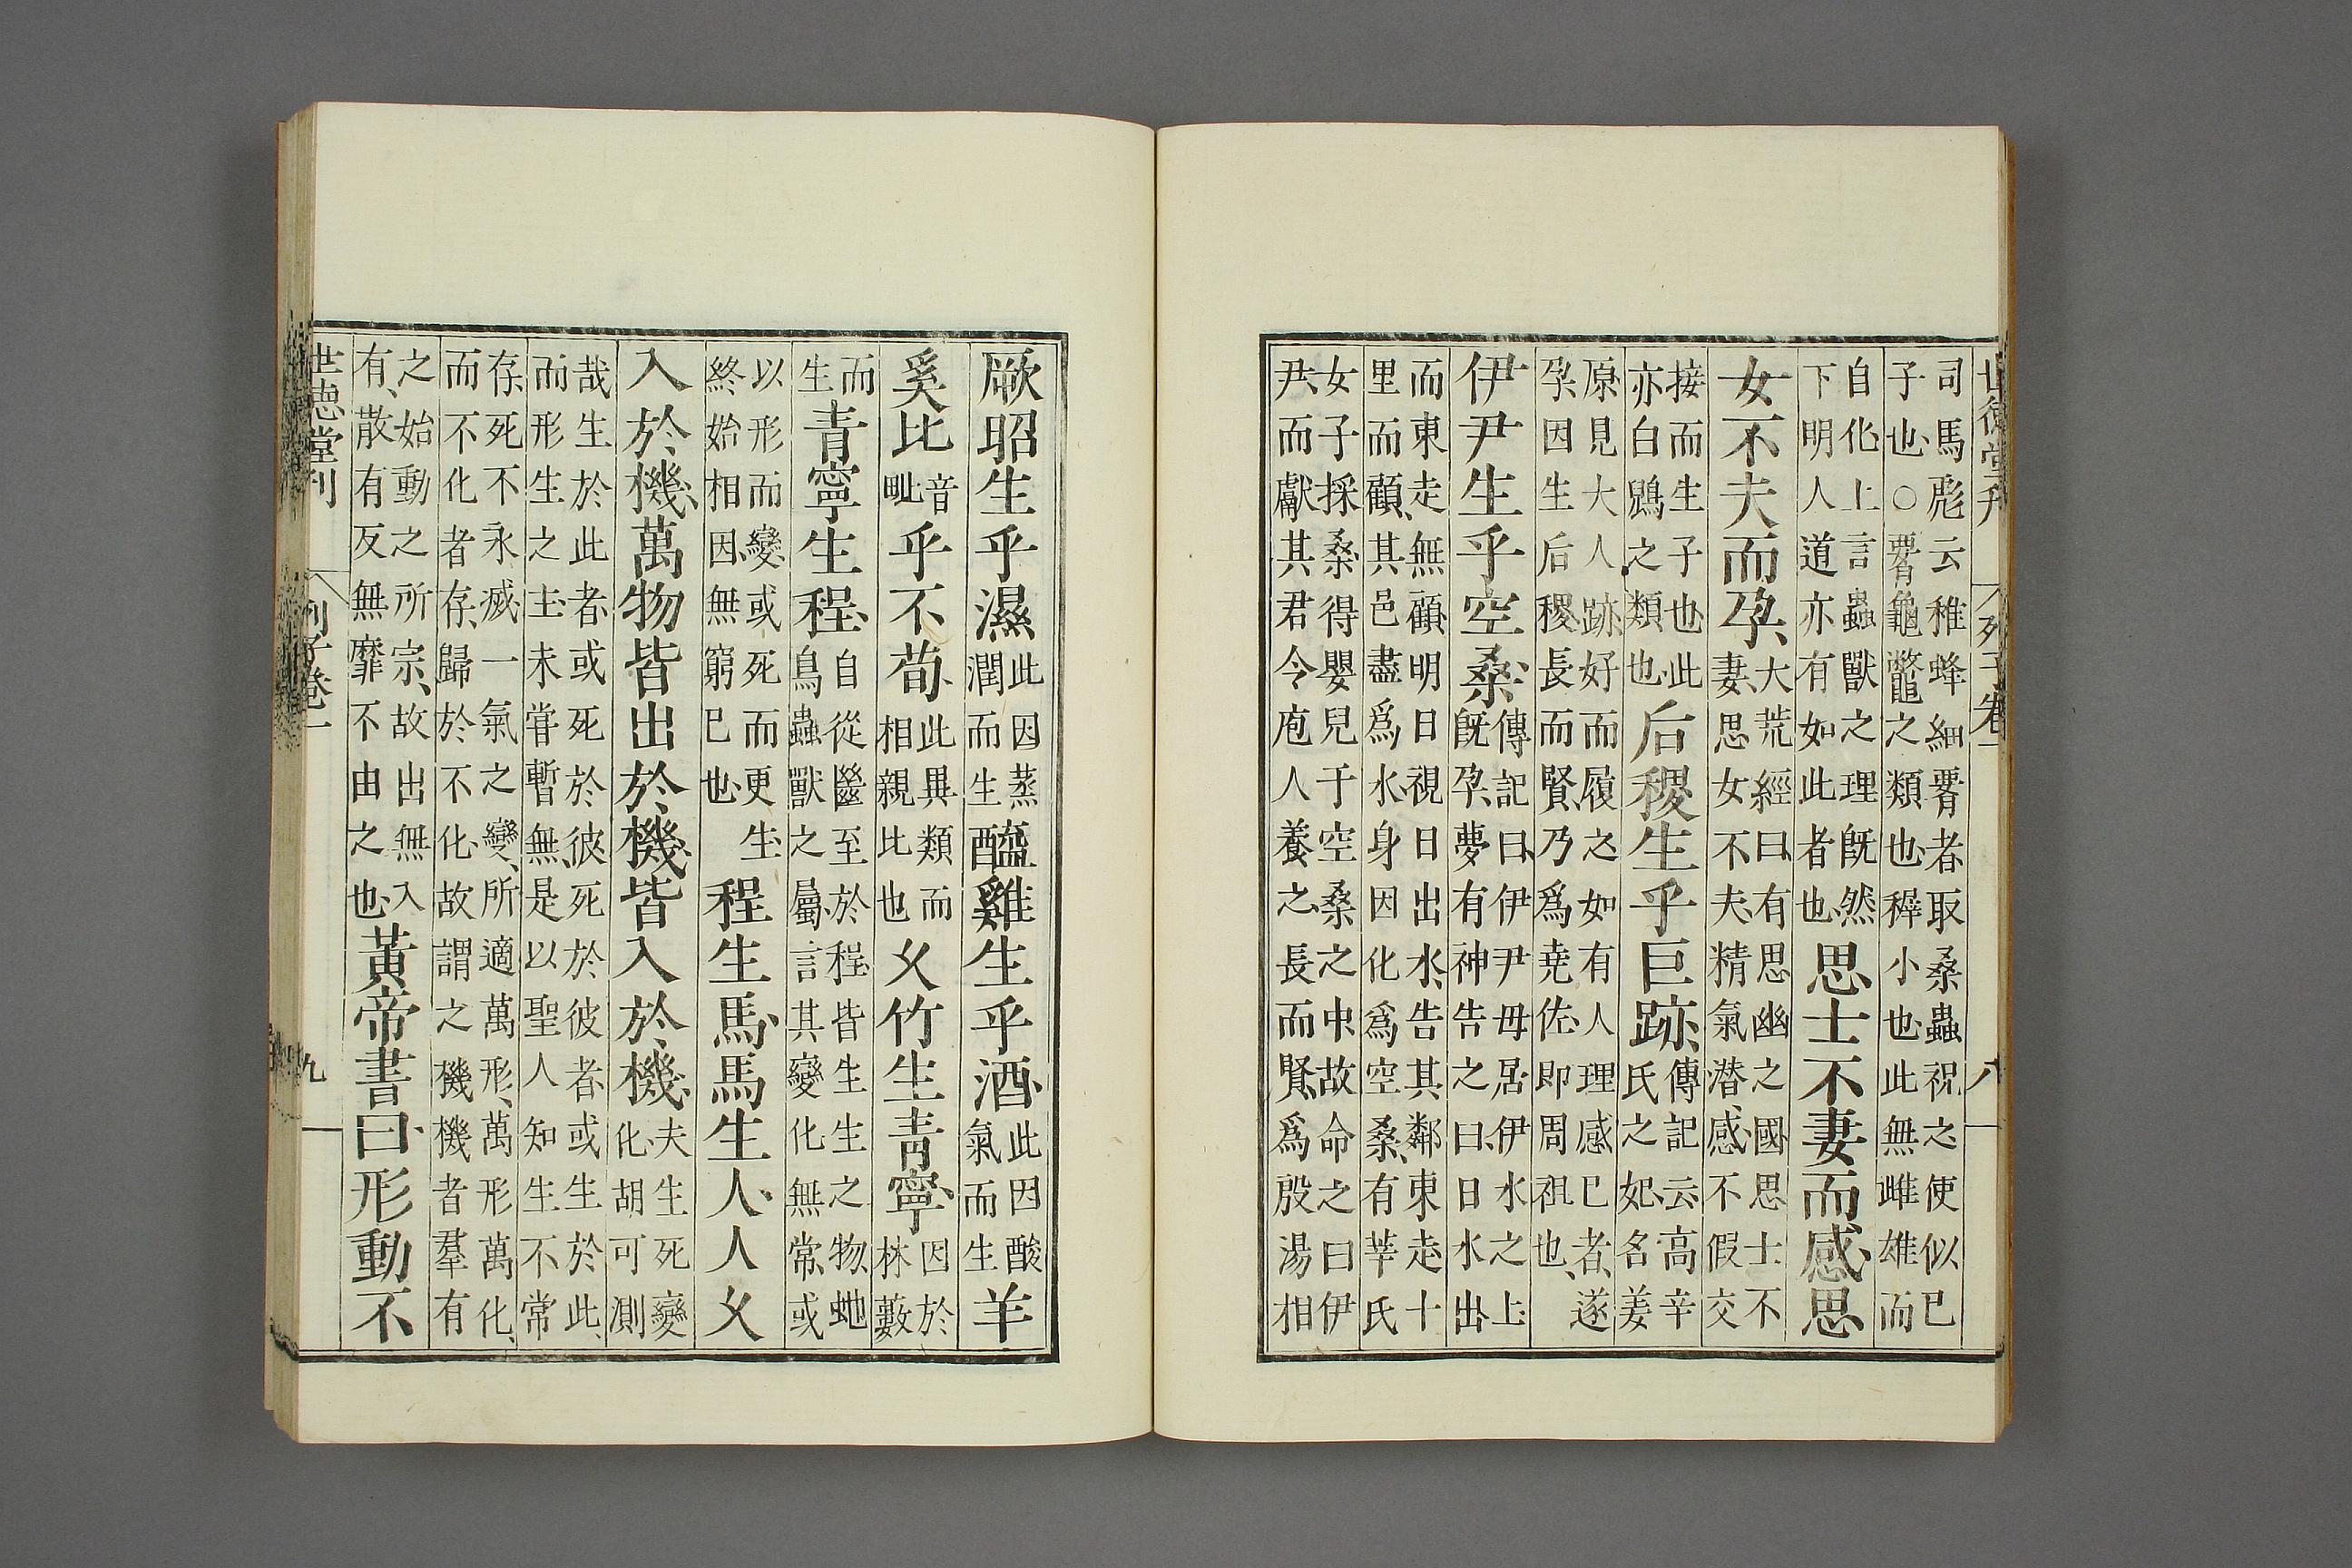 世德堂刊 列子卷一 八
司馬彪云稚蜂細腰者取桑蟲祝之使似已
子也○腰龜鱉之類也稺小也此無雌雄而
自化上言蟲獸之理旣然下明人道亦有如此者也思士不妻而感思
女不夫而孕大荒經曰有思幽之國思士不妻思女不夫精氣潛感不假交
接而生子也此亦白鵙之類也后稷生乎巨跡傳記云高辛氏之妃名姜
原見大人跡好而履之如有人理感已者遂
孕因生后稷長而賢乃爲堯佐即周祖也
伊尹生乎空桑傳記曰伊尹母居伊水之上旣孕夢有神告之曰日水出
而東走無顧明日視日出水告其鄰東走十
里而顧其邑盡爲水身因化爲空桑有莘氏
女子採桑得嬰兒于空桑之中故命之曰伊
尹而獻其君令庖人養之長而賢爲殷湯相
厥昭生乎濕此因蒸潤而生醯雞生乎酒此因酸氣而生羊
奚比音毗乎不荀此異類而相親比也久竹生青寧因於林藪
而生青寧生程自從至於程皆生生之物蚍鳥蟲獸之屬言其變化無常或
以形而變或死而更生終始相因無窮已也程生馬馬生人人久
入於機萬物皆出於機皆入於機夫生死變化胡可測
哉生於此者或死於彼死於彼者或生於此
而形生之主未甞暫無是以聖人知生不常
存死不永滅一氣之變所適萬形萬形萬化
而不化者存歸於不化故謂之機機者羣有
之始動之所宗故出無入有散有反無靡不由之也黃帝書曰形動不
世德堂刊 列子卷一 九